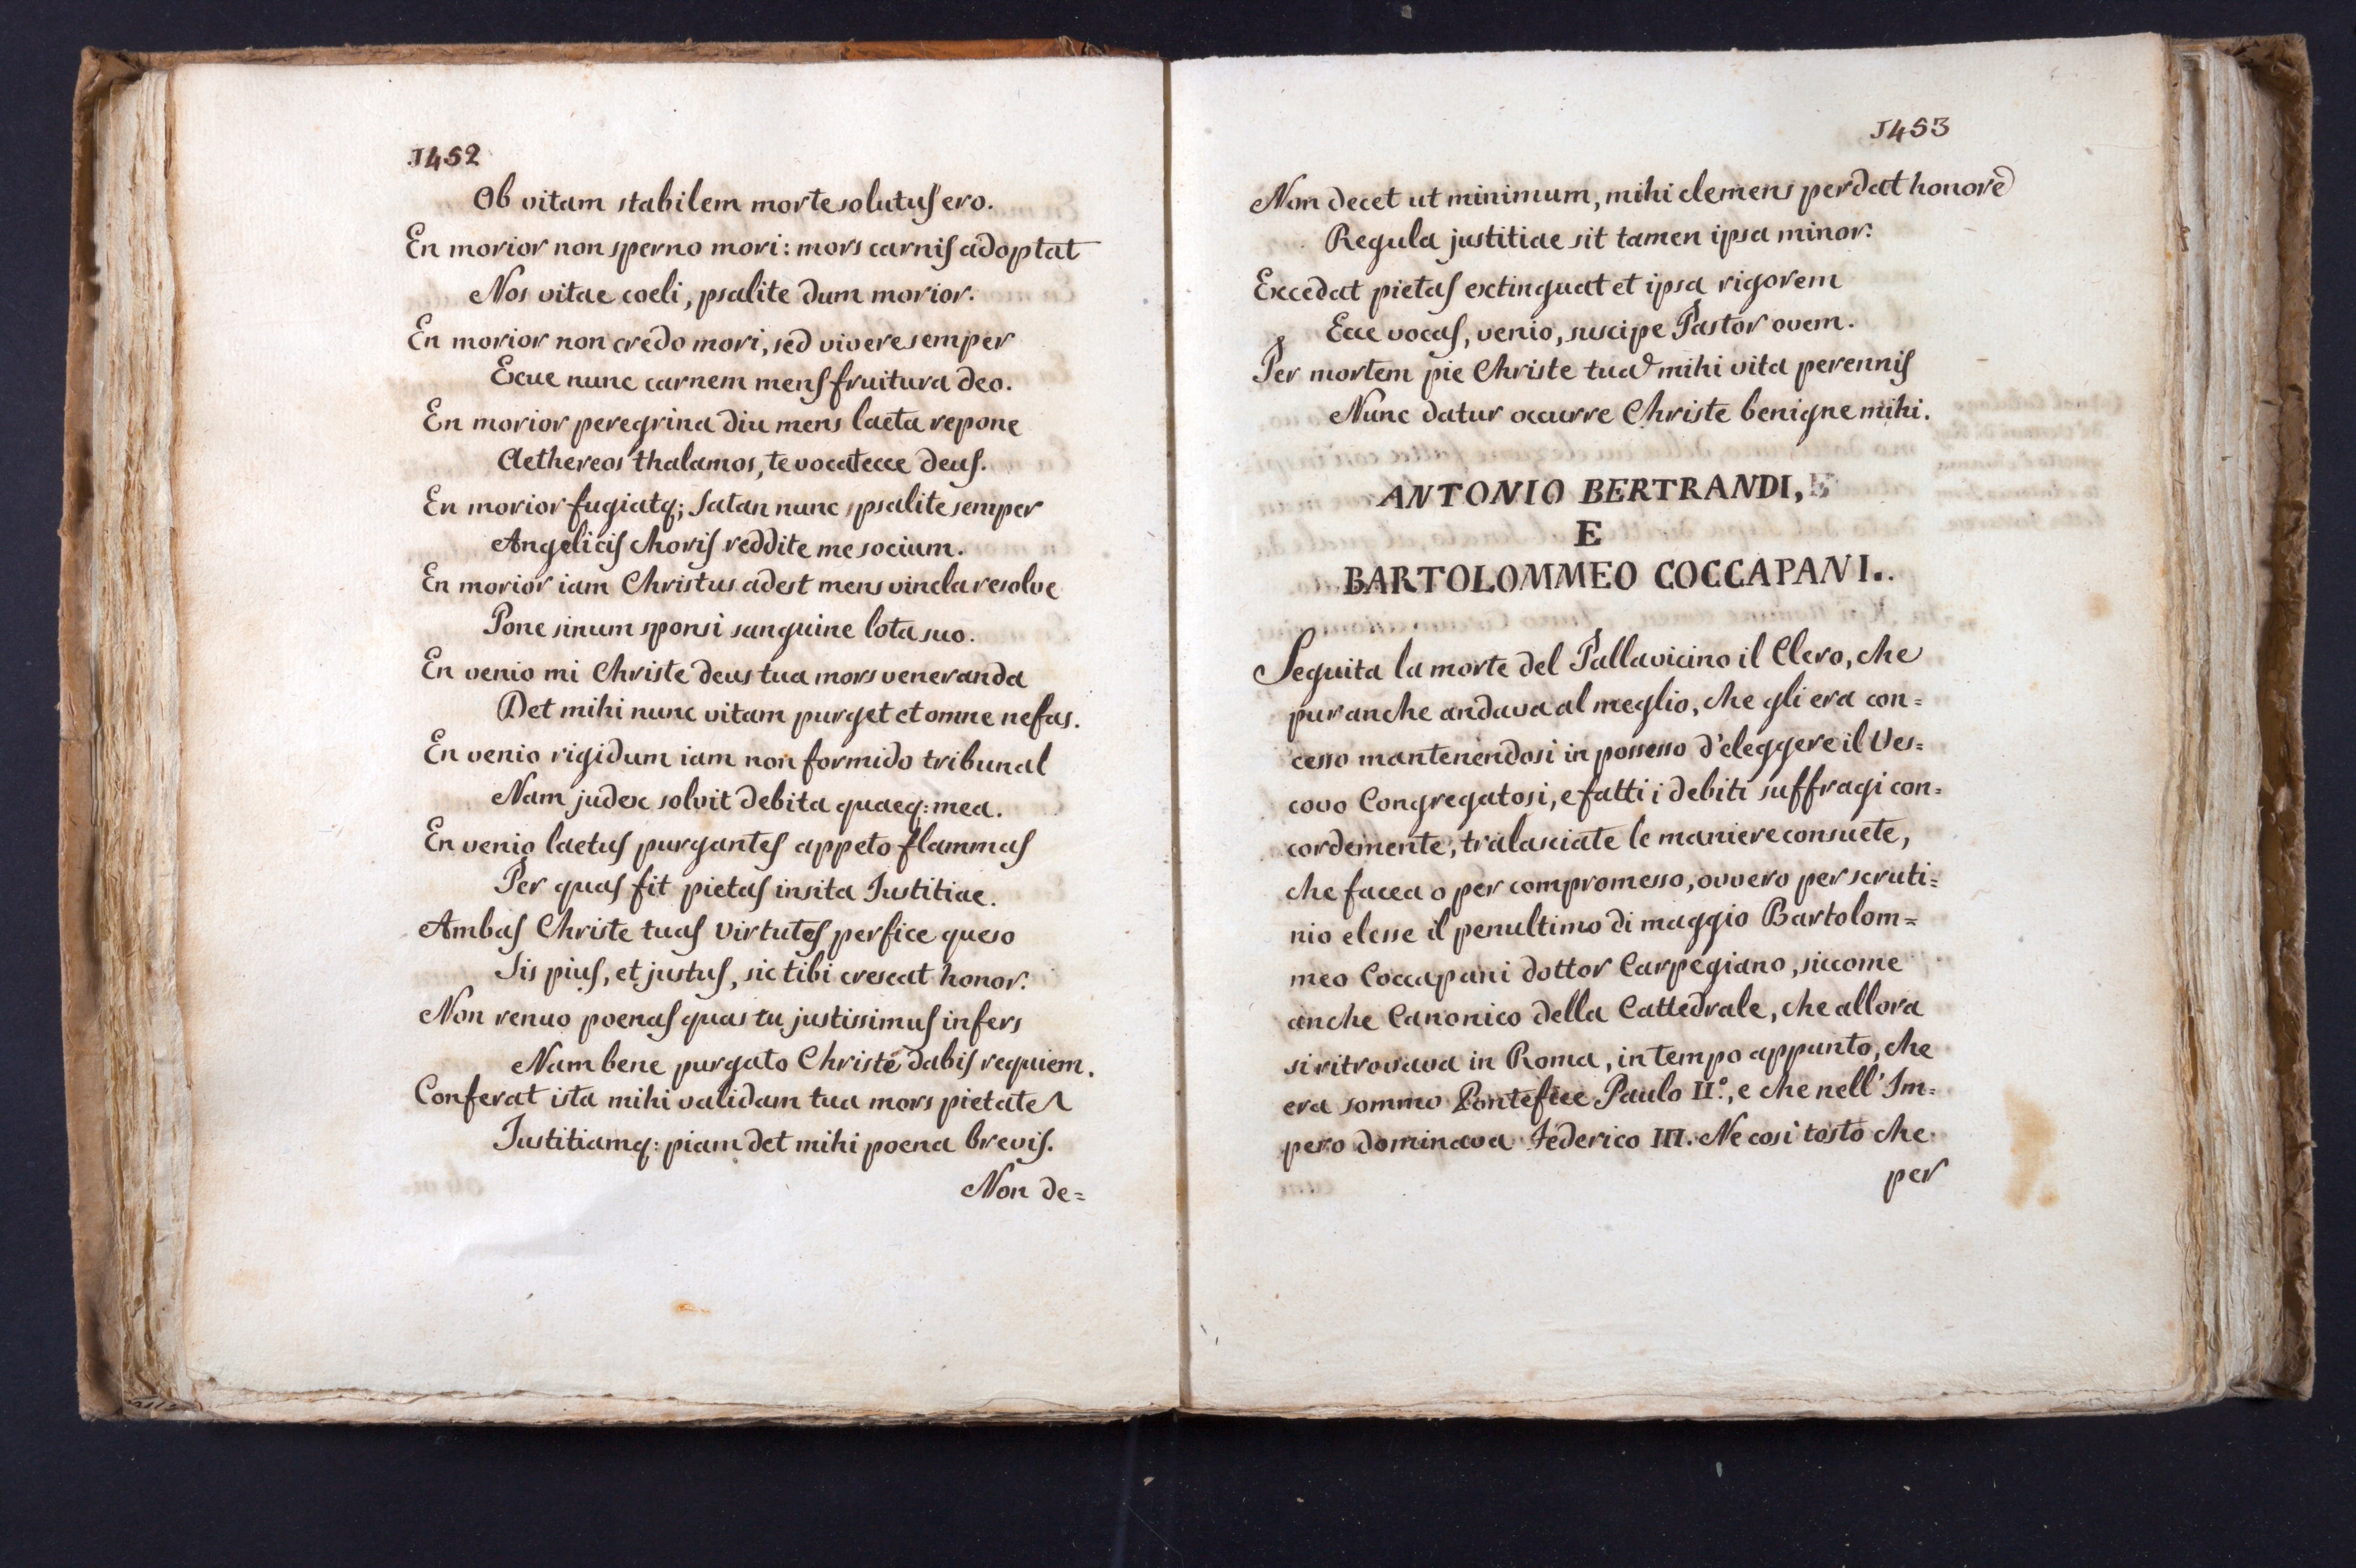 1452
Ob vitam stabilem morte solutus ero.
En morior non sperno mori: mors carnis adoptat
Nos vitae coeli, psalite dum morior.
En morior non credo mori, sed vivere semper
Exue nunc carnem mens fruitura deo.
En morior peregrina diu mens laeta repone
Aethereos thalamos, te vocat ecce deus.
En morior fugiatq; Satan nunc psalite semper
Angelicis choris reddite me socium.
En morior iam Christus adest mens vincla resolve
Pone sinum sponsi sanguine lota suo.
En venio mi Christe deus tua mors veneranda
Det mihi nunc vitam purget et omne nefas.
En venio rigidum iam non formido tribunal
Nam judex solvit debita quaeq: mea.
En venio laetus purgantes appeto flammas
Per quas fit pietas insita Iustitiae.
Ambas Christe tuas virtutes perfice queso
Sis pius, et justus, sic tibi crescat honor.
Non renuo poenas quas tu justissimus infers
Nam bene purgato Christe dabis requiem.
Conferat ista mihi validam tua mors pietatem
Iustitiamq: piam det mihi poena brevis.
Non de=
1453
Non decet ut minimum, mihi clemens perdat honorē
Regula justitiae sit tamen ipsa minor.
Excedat pietas extinguat et ipsa rigorem
Ecce vocas, venio, suscipe Pastor ovem.
Per mortem pie Christe tuā mihi vita perennis
Nunc datur occurre Christe benigne mihi.
ANTONIO BERTRANDI,
E
BARTOLOMMEO COCCAPANI.
Seguita la morte del Pallavicino il Clero, che
pur anche andava al meglio, che gli era con=
cesso mantenendosi in possesso d'eleggere il Ves=
covo Congregatosi, e fatti i debiti suffragi con=
cordemente, tralasciate le maniere consuete,
che facea o per compromesso, ovvero per scruti=
nio elesse il penultimo di maggio Bartolom=
meo Coccapani dottor Carpegiano, siccome
anche Canonico della Cattedrale, che allora
si ritrovava in Roma, in tempo appunto, che
era sommo Pontefice Paulo II.º, e che nell'Im=
pero dominava Federico III. Ne cosi tosto che
per